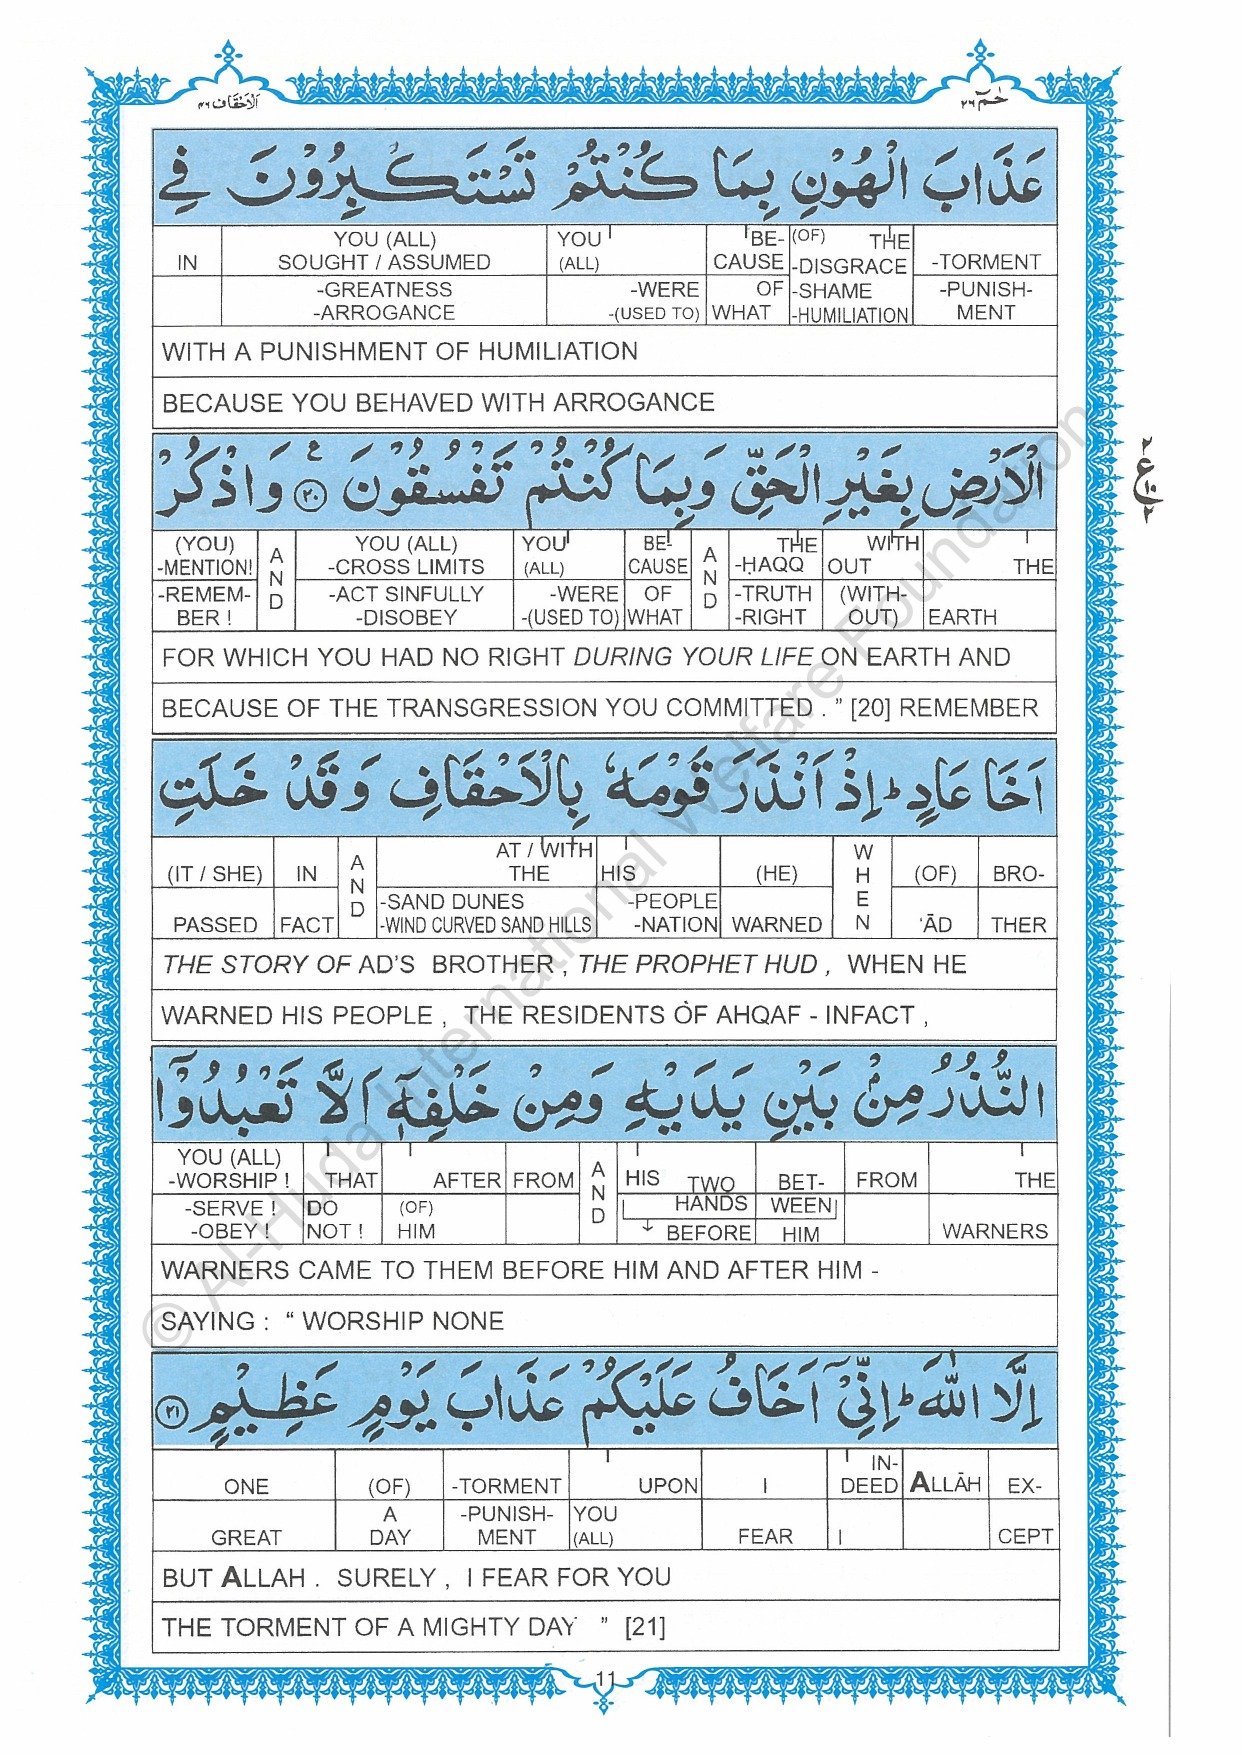 الاحقاف ٤٦
حٰمٓ ٢٦
عَذَابَ الْهُوْنِ بِمَا كُنْتُمْ تَسْتَكْبِرُوْنَ فِي
IN | YOU (ALL) SOUGHT / ASSUMED | YOU (ALL) | BE- CAUSE | (OF) THE -DISGRACE | -TORMENT
-GREATNESS -ARROGANCE | -WERE -(USED TO) | OF WHAT | -SHAME -HUMILIATION | -PUNISH- MENT
WITH A PUNISHMENT OF HUMILIATION
BECAUSE YOU BEHAVED WITH ARROGANCE
الْاَرْضِ بِغَيْرِ الْحَقِّ وَبِمَا كُنْتُمْ تَفْسُقُوْنَ ۟ع ٢٠ وَاذْكُرْ
٢ ع ١٠ ٢
(YOU) -MENTION! | AND | YOU (ALL) -CROSS LIMITS | YOU (ALL) | BE- CAUSE | AND | THE -ḤAQQ | WITH OUT | THE
-REMEM- BER ! | -ACT SINFULLY -DISOBEY | -WERE -(USED TO) | OF WHAT | -TRUTH -RIGHT | (WITH- OUT) | EARTH
FOR WHICH YOU HAD NO RIGHT DURING YOUR LIFE ON EARTH AND
BECAUSE OF THE TRANSGRESSION YOU COMMITTED . ” [20] REMEMBER
اَخَا عَادٍ ؕ اِذْ اَنْذَرَ قَوْمَهٗ بِالْاَحْقَافِ وَقَدْ خَلَتِ
(IT / SHE) | IN | AND | AT / WITH THE | HIS | (HE) | WHEN | (OF) | BRO-
PASSED | FACT | -SAND DUNES -WIND CURVED SAND HILLS | -PEOPLE -NATION | WARNED | ‘ĀD | THER
THE STORY OF AD’S BROTHER , THE PROPHET HUD , WHEN HE
WARNED HIS PEOPLE , THE RESIDENTS OF AHQAF - INFACT ,
النُّذُرُ مِنْۢ بَيْنِ يَدَيْهِ وَمِنْ خَلْفِهٖۤ اَلَّا تَعْبُدُوْۤا
YOU (ALL) -WORSHIP ! | THAT | AFTER | FROM | AND | HIS TWO | BET- | FROM | THE
-SERVE ! -OBEY ! | DO NOT ! | (OF) HIM | HANDS BEFORE | WEEN HIM | WARNERS
WARNERS CAME TO THEM BEFORE HIM AND AFTER HIM -
SAYING : “ WORSHIP NONE
اِلَّا اللّٰهَ ؕ اِنِّيْۤ اَخَافُ عَلَيْكُمْ عَذَابَ يَوْمٍ عَظِيْمٍ ٢١
ONE | (OF) | -TORMENT | UPON | I | IN- DEED | ALLĀH | EX-
GREAT | A DAY | -PUNISH- MENT | YOU (ALL) | FEAR | I | CEPT
BUT ALLAH . SURELY , I FEAR FOR YOU
THE TORMENT OF A MIGHTY DAY ” [21]
11
© Al-Huda International Welfare Foundation